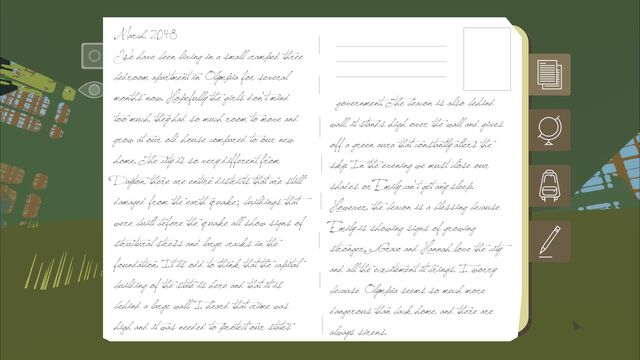 March, 2048
We have been living in a small cramped three
bedroom apartment in Olympia for several
months now. Hopefully the girls don't mind
too much, they had so much room to move and
grow at our old house compared to our new
home. The city is so very different from
Dayton, there are entire districts that are still
damaged from the earth quake; buildings that
were built before the quake all show signs of
structural stress and large cracks in the
foundation. It is odd to think that the capital
building of the state is here and that it is
behind a large wall. I heard that crime was
high and it was needed to protect our state's
government. The beacon is also behind
wall, it stands high over the wall and gives
off a green aura that constantly alters the
sky. In the evening we must close our
shades or Emily can't get any sleep.
However, the beacon is a blessing because
Emily is showing signs of growing
stronger. Grace and Hannah love the city
and all the excitement it brings. I worry
because Olympia seems so much more
dangerous than back home, and there are
always sirens.